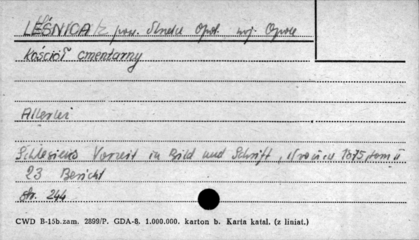 LEŚNICA pow. Strzelce Opol. woj. Opole
Kościół cmentarny
Allerlei
Schlesiens Vorzeit in Bild und Schrift, 1875 tom II
23 Bericht
str. 244
CWD B-15b.zam. 2899/P. GDA-8. 1.000.000. karton b. Karta katal. (z liniat.)